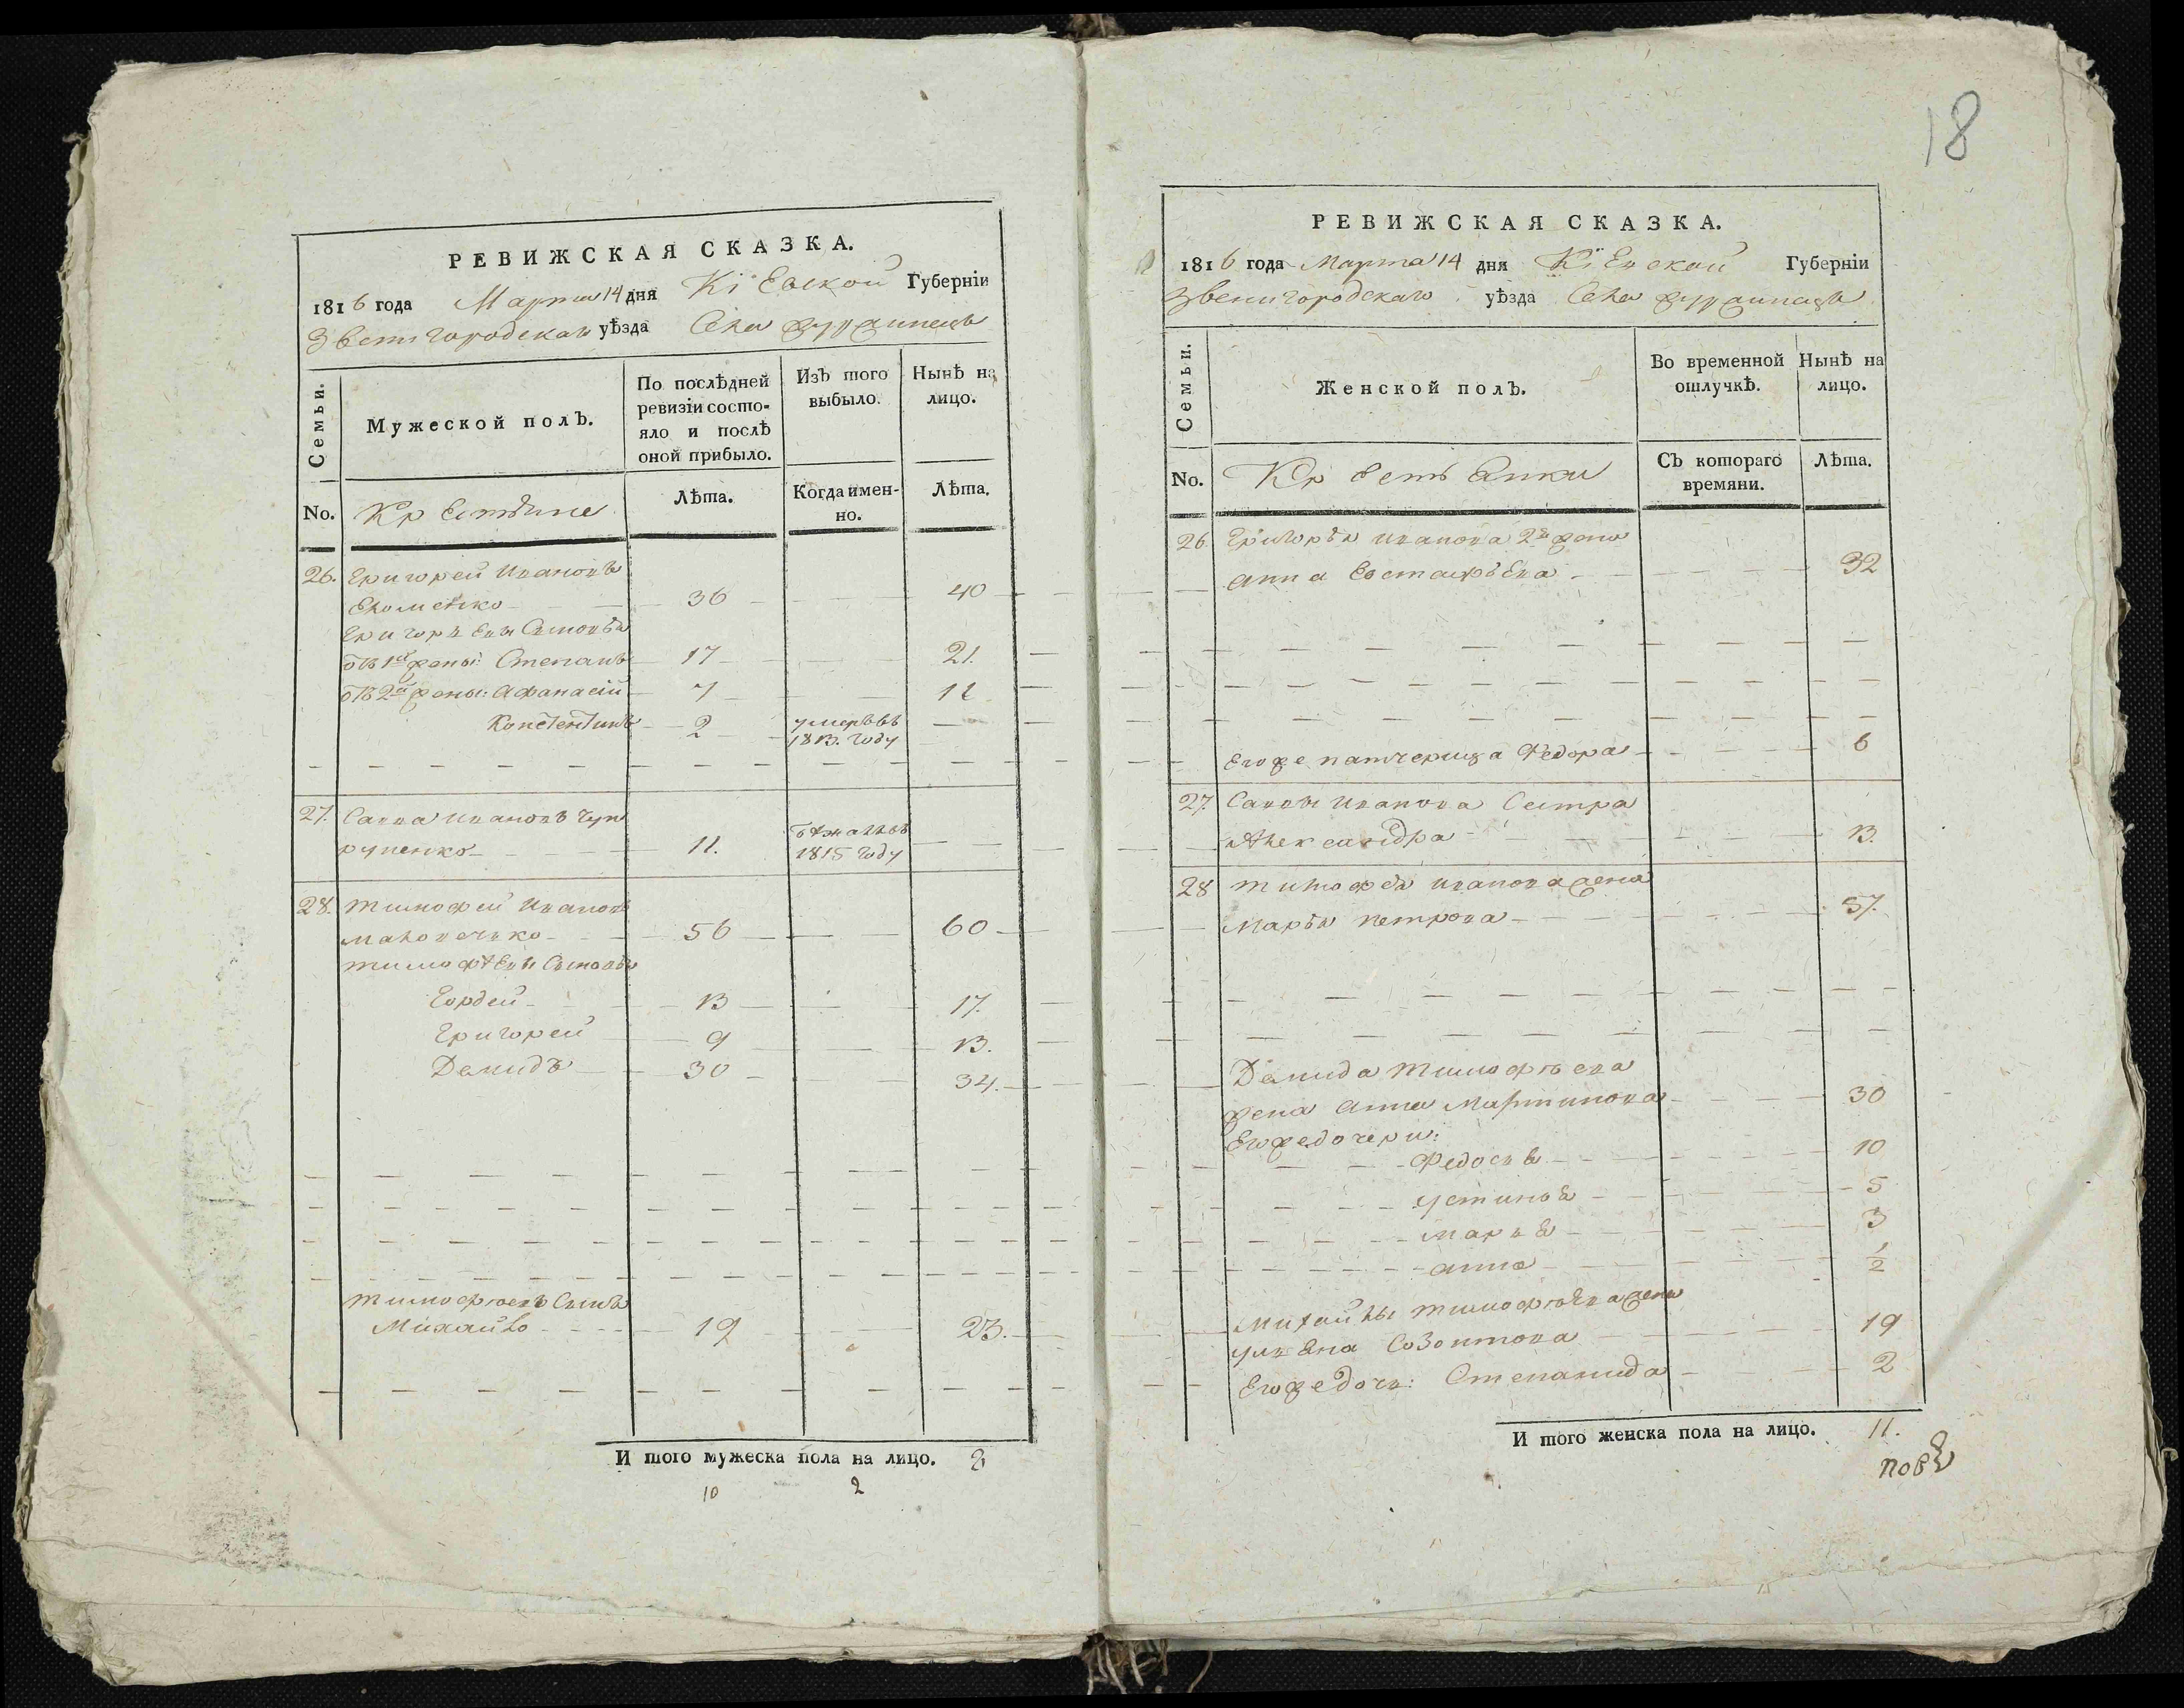 РЕВИЖСКАЯ СКАЗКА.
1816 года Марта 14 дня Кіевской Губерніи
Звенигородскаго уѣзда Села
Семьи.
Мужеской полъ.
По послѣдней ревизіи состо-
яло и послѣ оной прибыло.
Изъ того выбыло.
Нынѣ на лицо.
No.
Крестьяне
Лѣта.
Когда имен-
но.
Лѣта.
26. Григорей Ивановъ
36 40
Григорьевы Сыновья
отъ 1й жены: Степанъ 17 21.
отъ 2й жены: Афанасій 7 11
Константинъ 2 умерѣвъ
1813. году
27. Савва Ивановъ Чуп
рупенко 11. бѣжалъвъ
1815 году
28. Тимофей Ивановъ
56 60
Тимофѣевы Сыновья
Гордей 13 17.
Григорей 9 13.
Демидъ 30 34.
Тимофѣевъ Сынъ
Михайло 19 23.
И того мужеска пола на лицо. 8
10 2
18
РЕВИЖСКАЯ СКАЗКА.
1816 года Марта 14 дня Кіевской Губерніи
Звенигородскаго уѣзда Села
Семьи.
Женской полъ.
Во временной отлучкѣ.
Нынѣ на лицо.
No.
Крестьянки
Съ котораго времяни.
Лѣта.
26. Григорья Иванова 2я жена
Анна Евстафьева 32
Егоже патчерица Федора 6
27. Саввы Иванова Сестра
Александра 13.
28 Тимофея Иванова жена
Марья Петрова 57.
Демида Тимофѣева
жена Анна Мартинова 30
Егожедочери:
Федосья 10
Устинья 5
Марья 3
Анна 1/2
Михайлы Тимофѣева жена
Ульяна Созонтова 19
Егожедочь: Степанида 2
И того женска пола на лицо. 11.